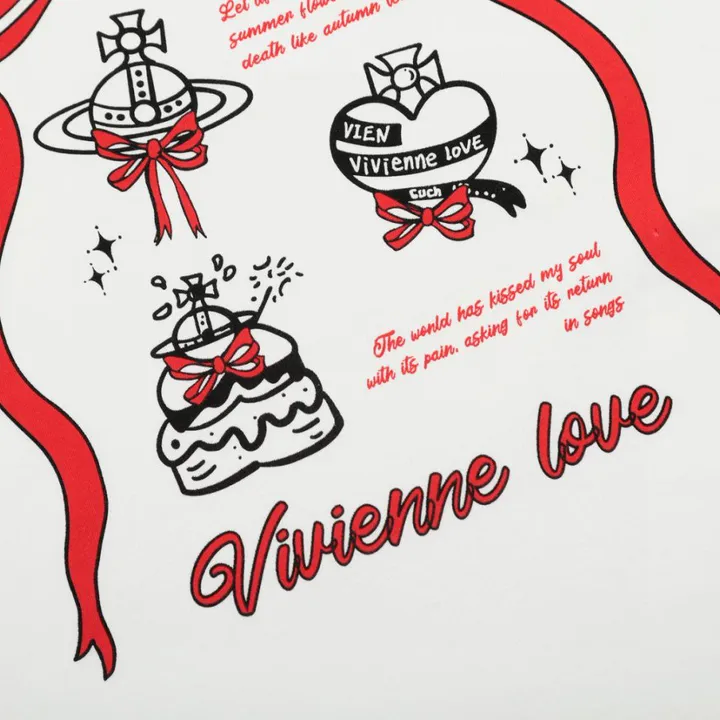 Let
summer
death like autumn
VIEN
Vivienne LOVE
Such
The world has kissed my soul
with its pain. asking for its return
in songs
Vivienne love